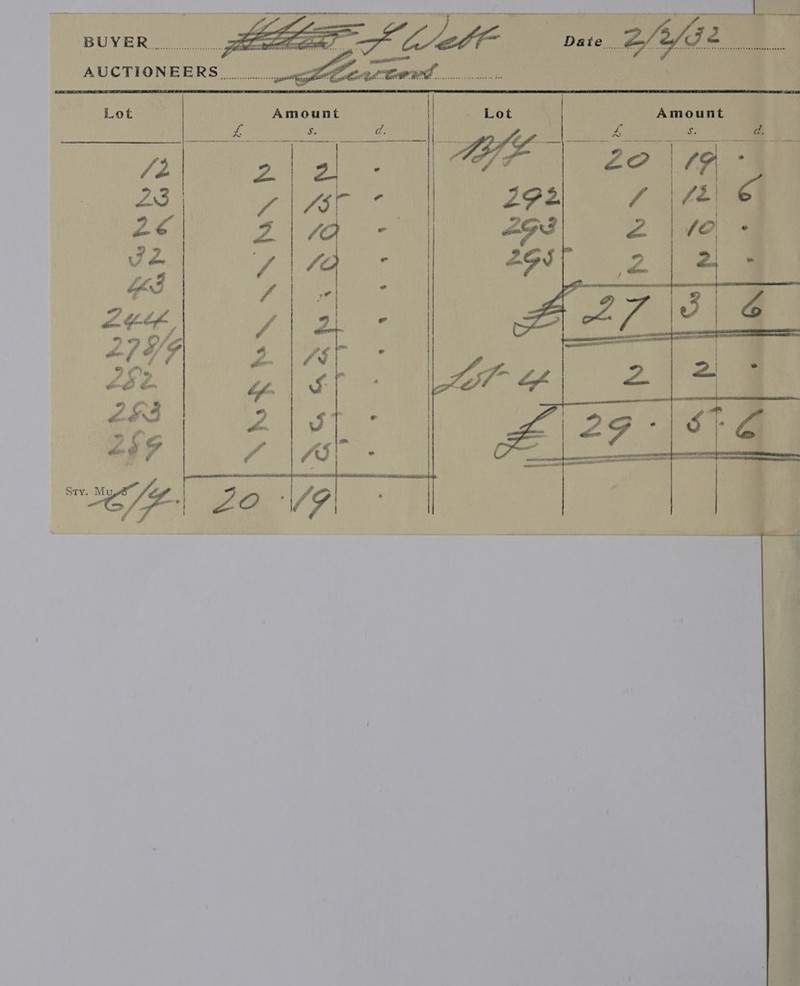 BUYER F Welt Date 2/2/32
AUCTIONEERS Stevens
Lot Amount Lot Amount
£ s. d. £ s. d.
B/f 20 19 -
12 2 2 -
23 1 15 - 292 1 12 6
26 2 10 - 293 2 10 -
32 1 10 - 295 2 2 -
43 1 - -
244 1 2 - £ 27 3 6
278/9 2 15 -
282 4 5 - Lot 4 2 2 -
283 2 5 -
289 1 15 - £ 29 - 5 - 6
STY. Mu C/f. 20 - 19 -